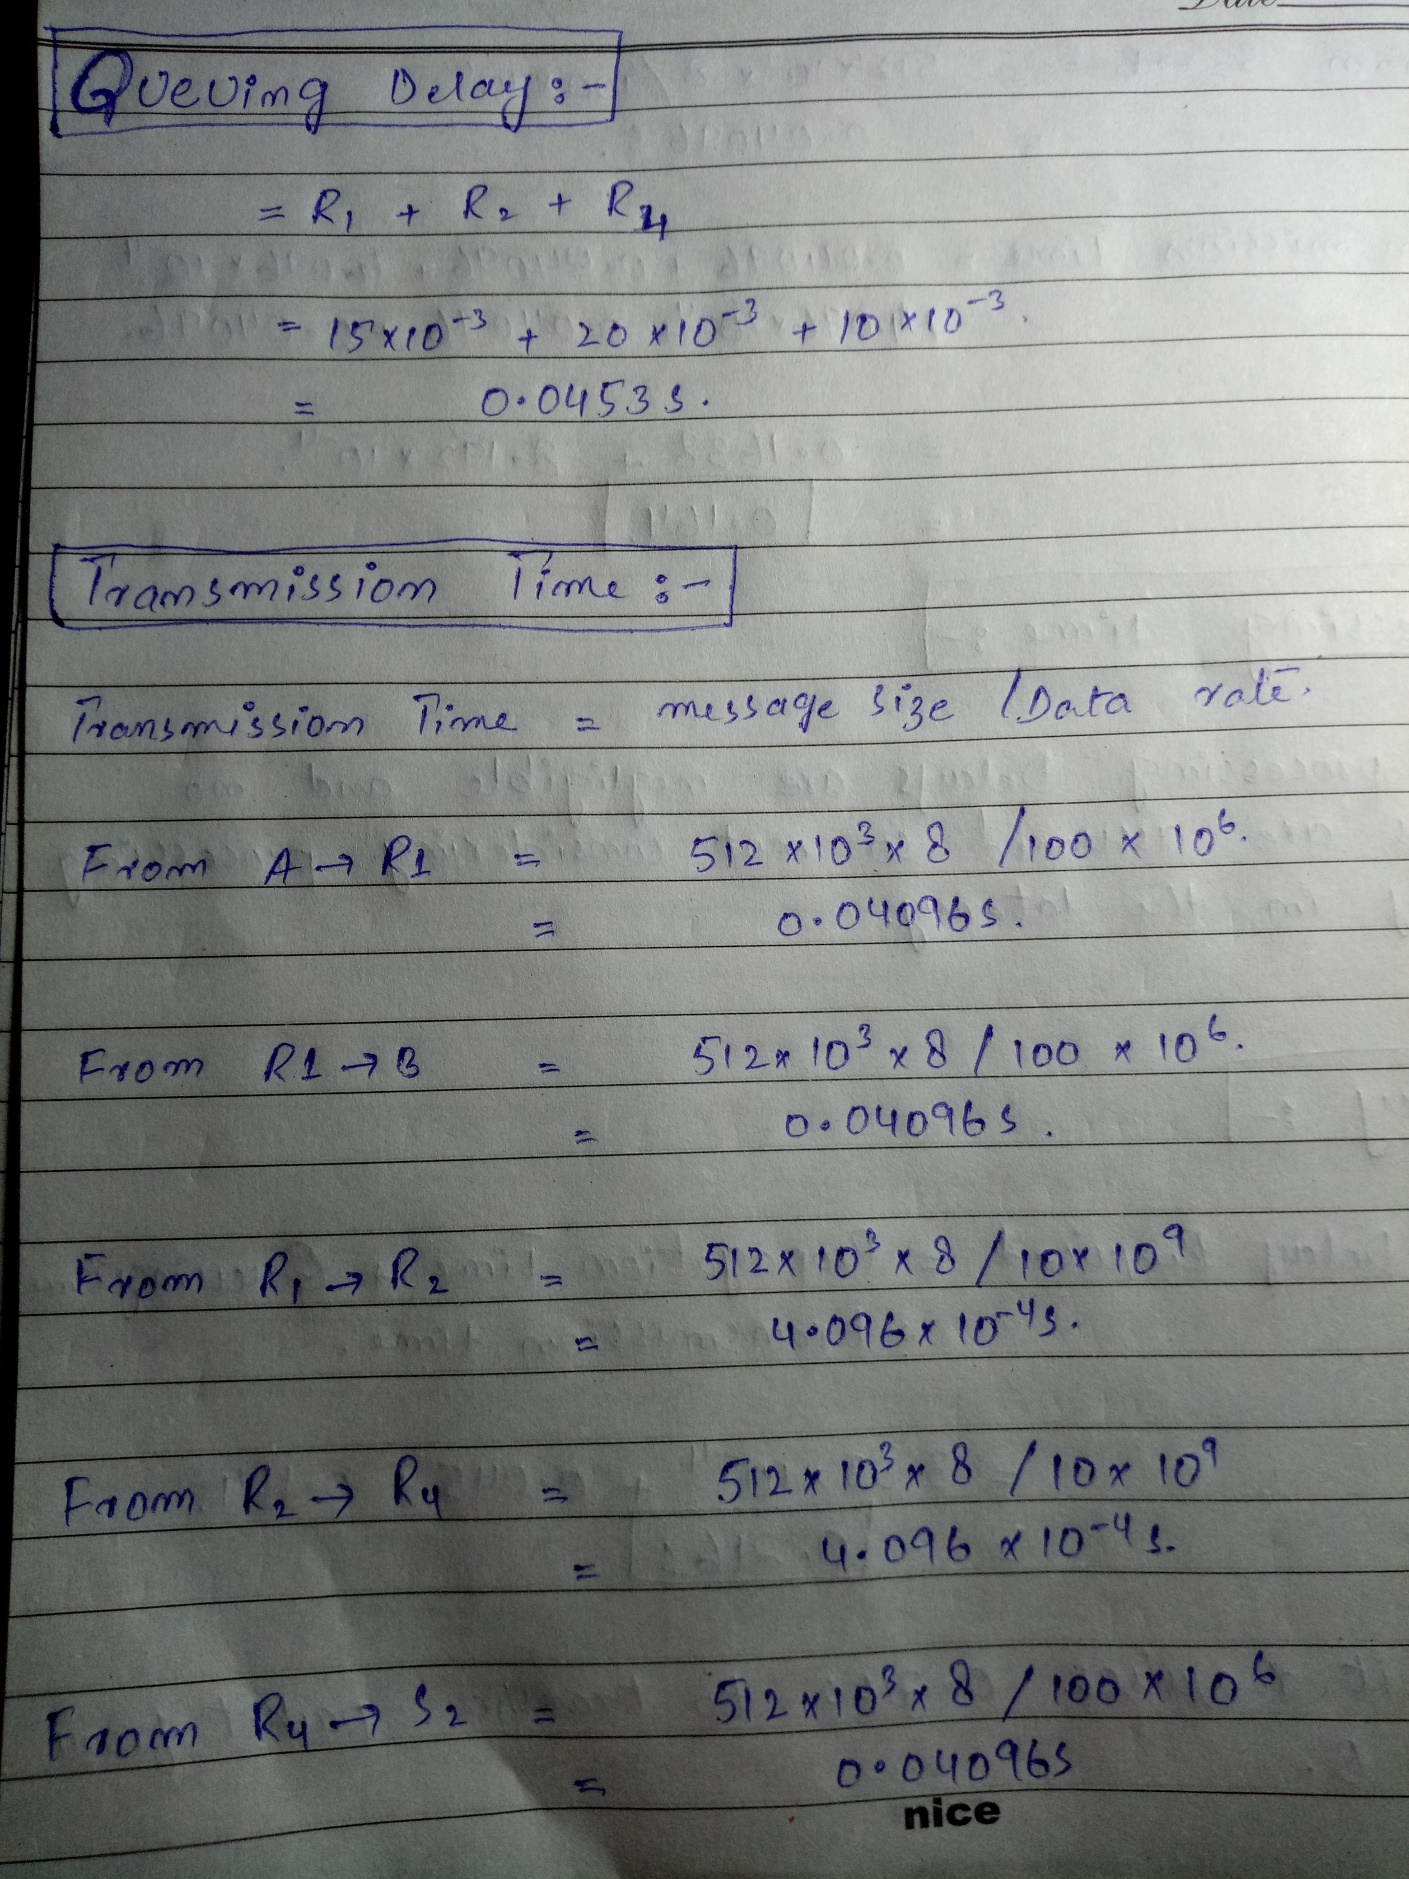 Date
Queuing Delay :-
= R₁ + R₂ + R₄
= 15×10⁻³ + 20×10⁻³ + 10×10⁻³.
= 0.0453s.
Transmission Time :-
Transmission Time = message size / Data rate.
From A → R1 = 512×10³×8 /100 × 10⁶.
= 0.04096s.
From R1 → B = 512×10³×8 / 100 × 10⁶.
= 0.04096s.
From R₁ → R₂ = 512×10³×8 / 10×10⁹
= 4.096×10⁻⁴s.
From R₂ → R₄ = 512×10³×8 / 10×10⁹
= 4.096×10⁻⁴s.
From R₄ → S₂ = 512×10³×8 / 100×10⁶
= 0.04096s
nice